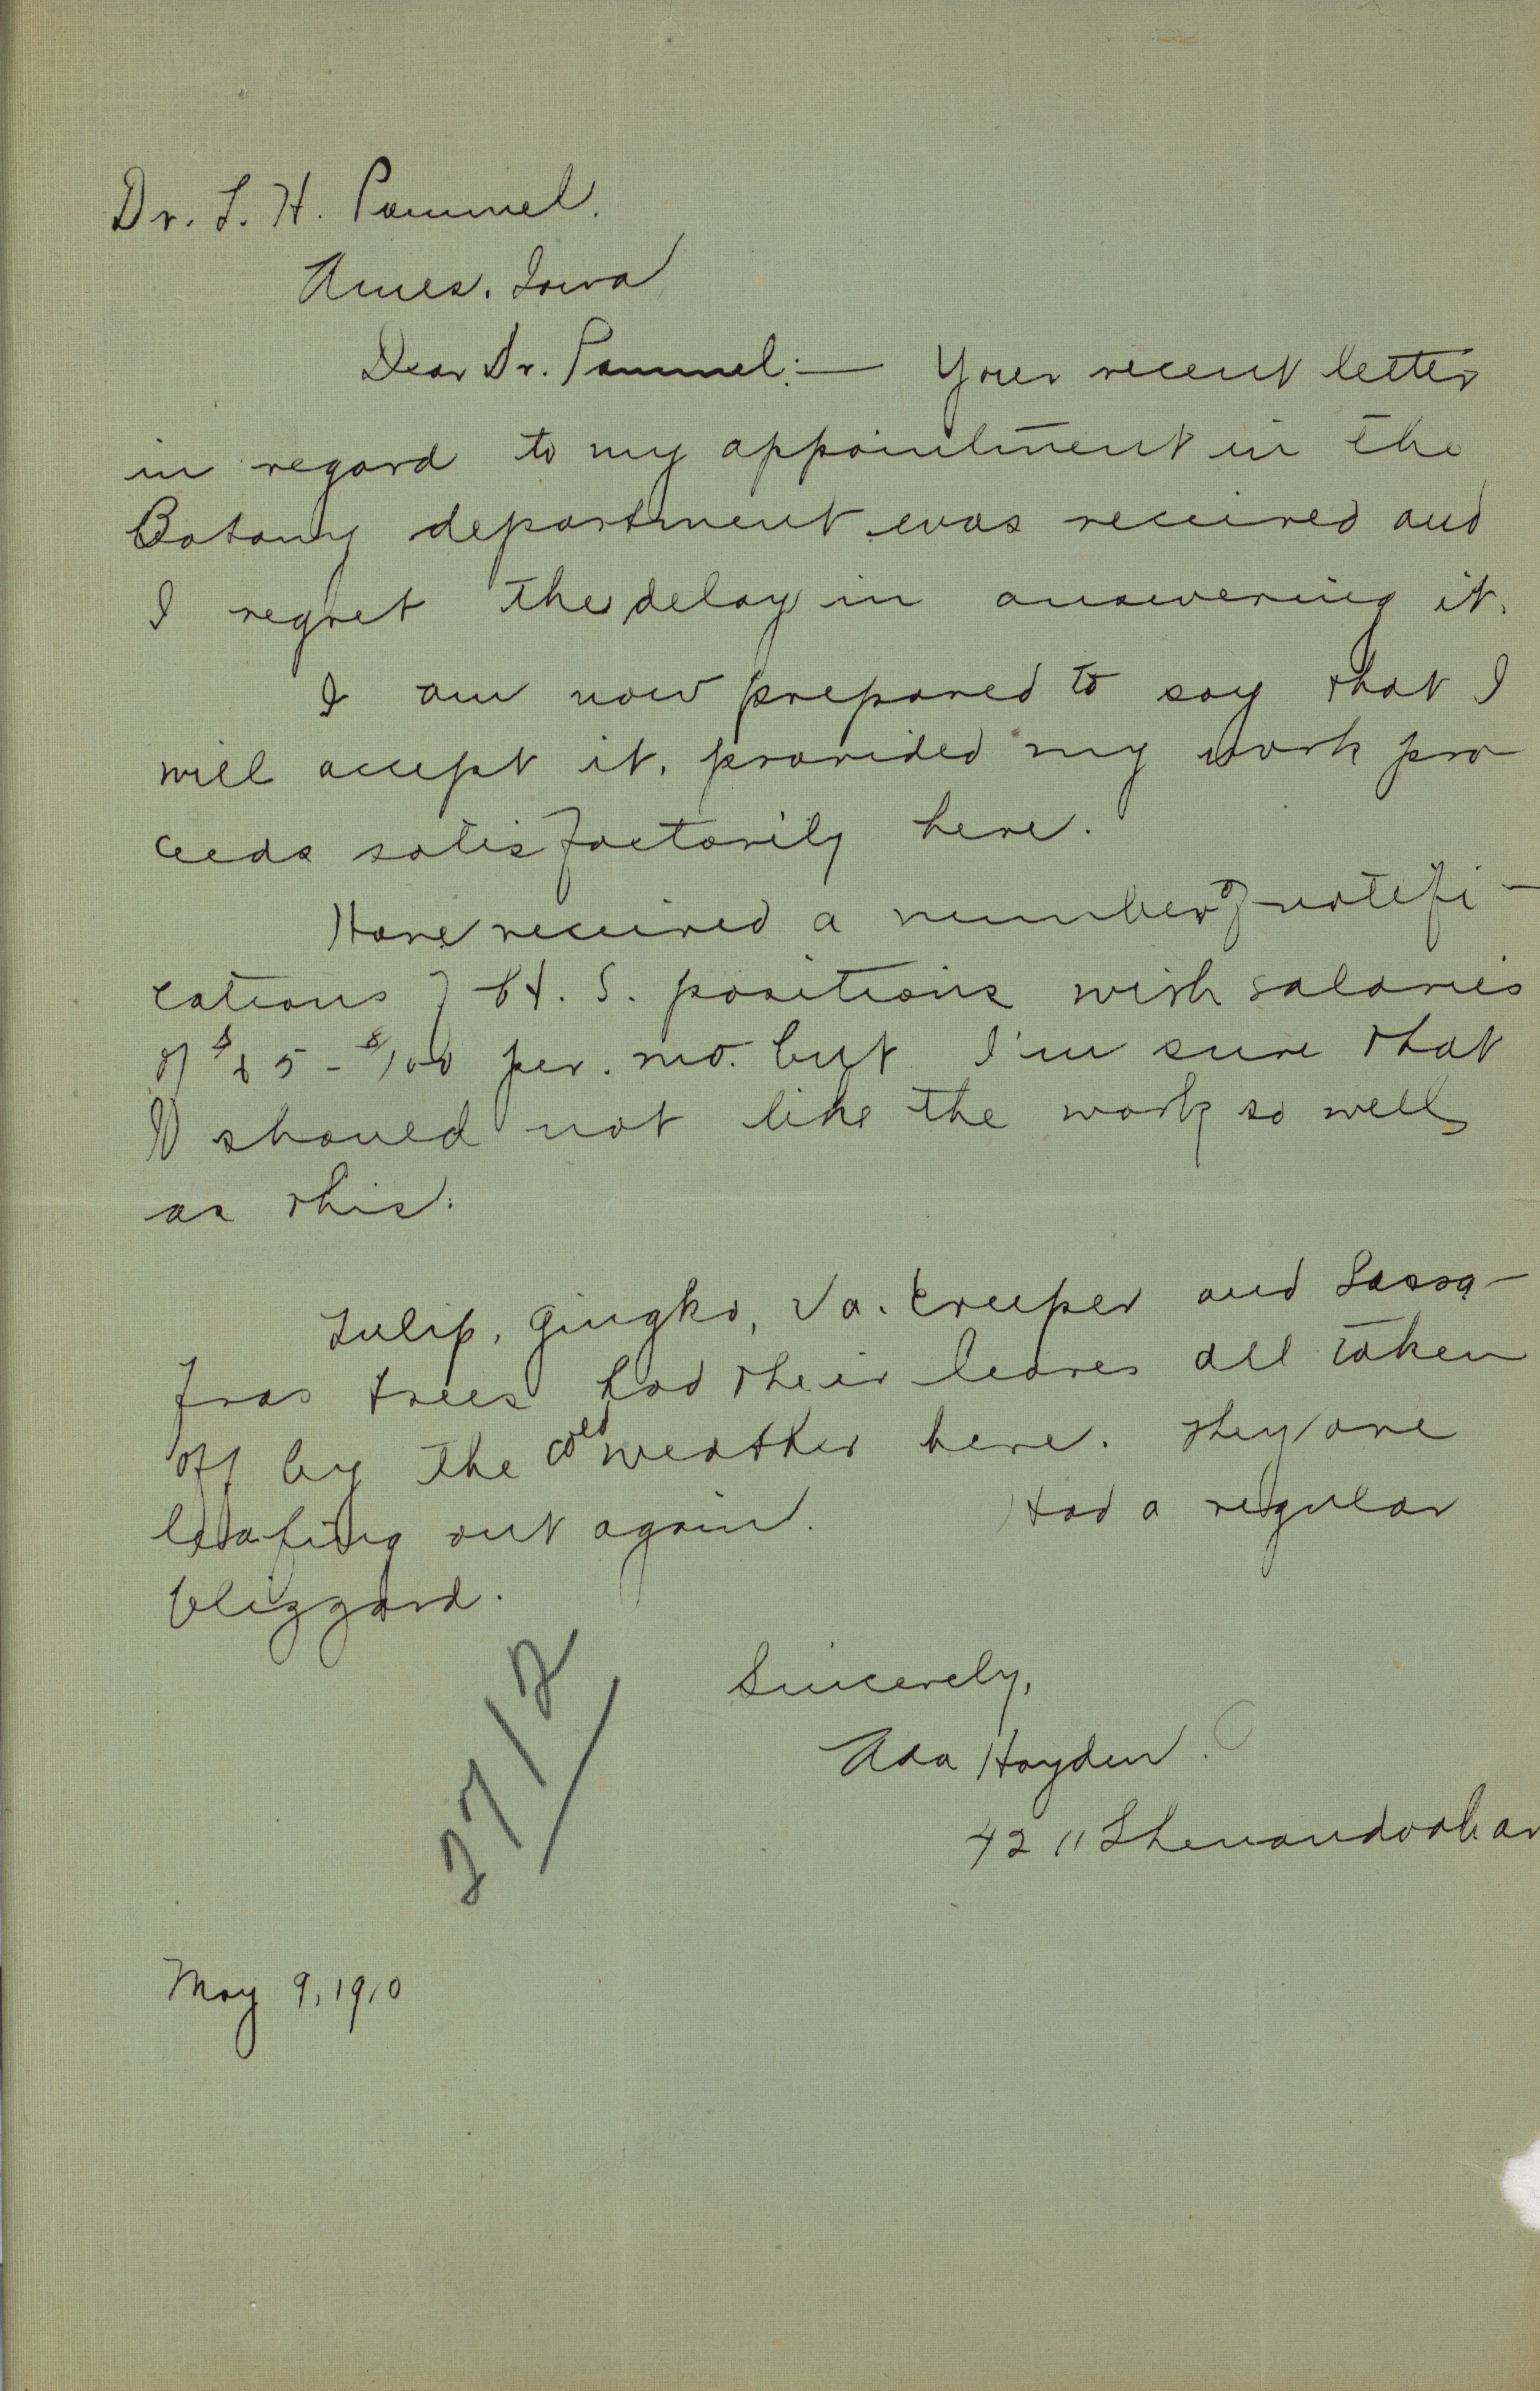 Dr. L. H. Pammel.
Ames. Iowa
Dear Dr. Pammel:— Your recent letter
in regard to my appointment in the
Botany department was received and
I regret the delay in answering it.
I am now prepared to say that I
will accept it, provided my work pro
ceeds satisfactorily here.
Have received a number of notifi-
cations of H. S. positions with salaries
of $85 - $100 per. mo. but I'm sure that
I should not like the work so well
as this.
Tulip, Gingko, Va. Creeper and Sassa-
fras trees had their leaves all taken
off by the cold weather here. They are
leafing out again. Had a regular
blizzard.
Sincerely,
Ada Hayden.
4211 Shenandoah av
2712
May 9, 1910